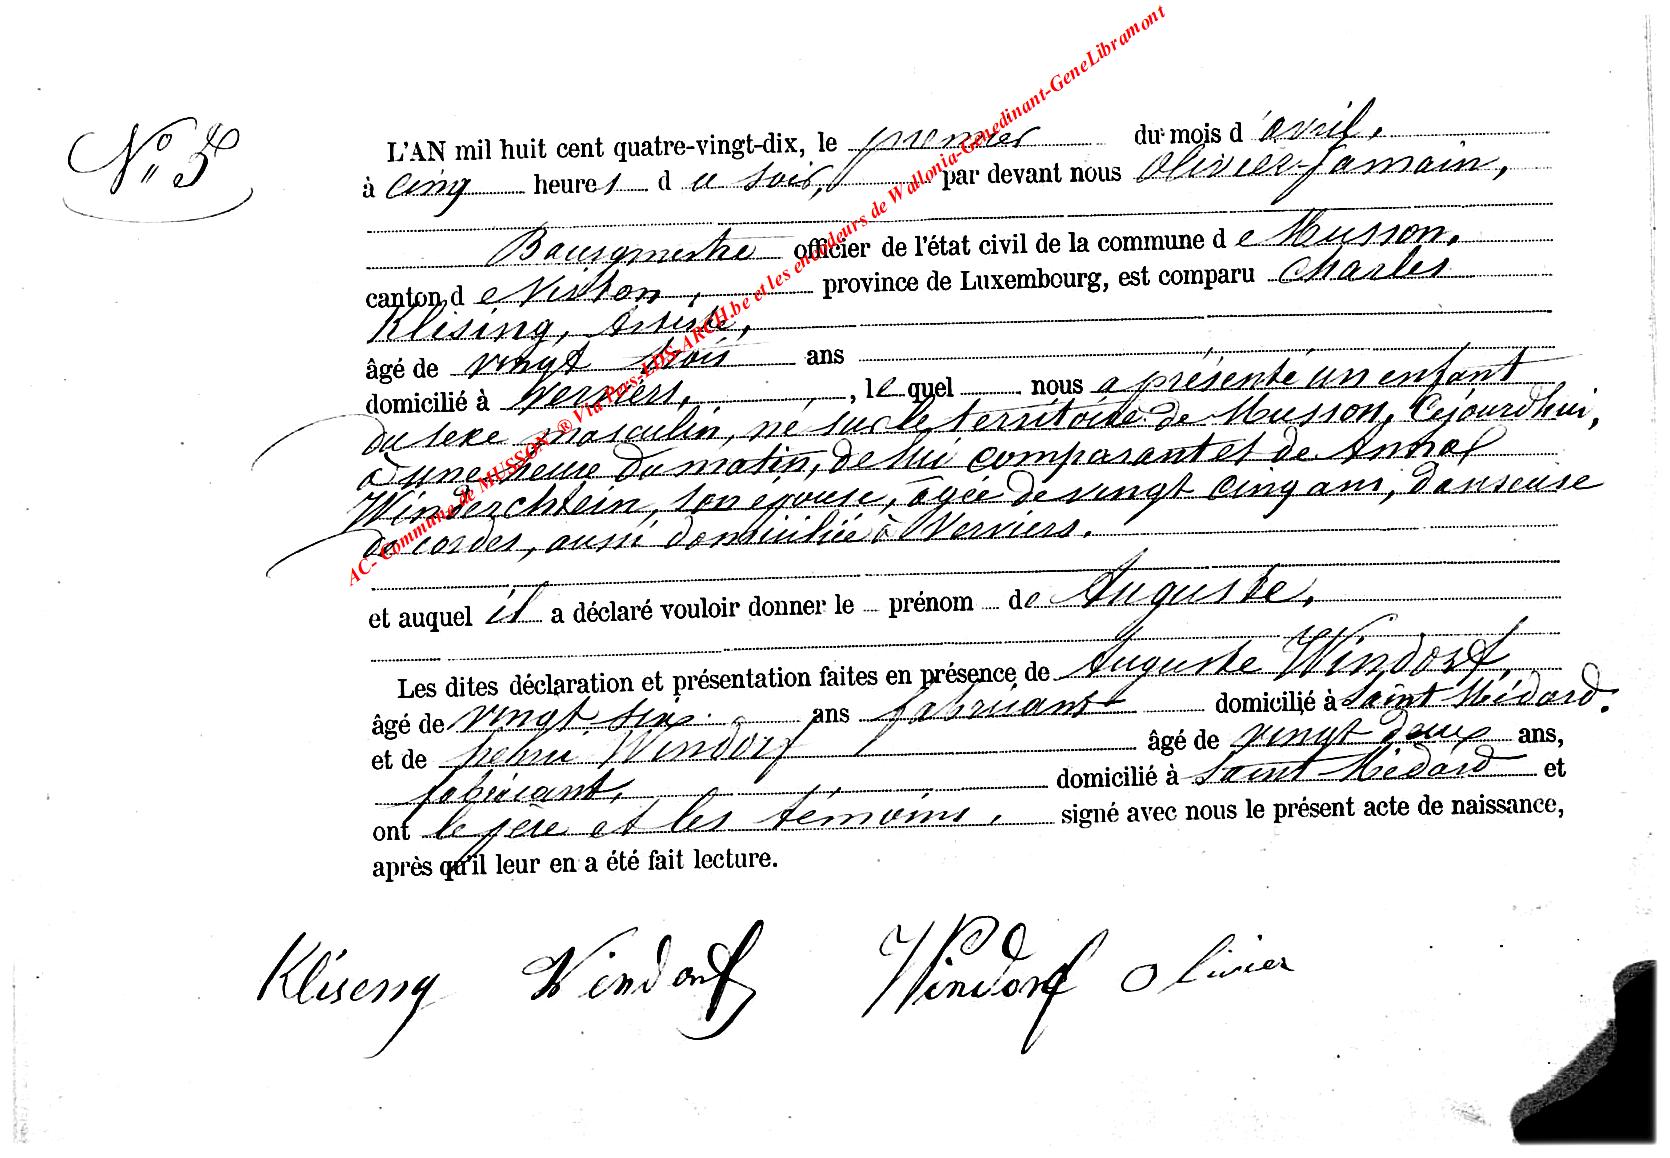 N° 5
L'AN mil huit cent quatre-vingt-dix, le premier du mois d'avril,
à cinq heures du soir, par devant nous Olivier Jamain,
Bourgmestre officier de l'état civil de la commune de Musson,
canton de Virton, province de Luxembourg, est comparu Charles
Klising, Artiste,
âgé de vingt trois ans
domicilié à Verviers, , lequel nous a présenté un enfant
du sexe masculin, né sur le territoire de Musson, Cejourdhui,
à une heure du matin, de lui comparant et de Anna
Winderchtein, son épouse, âgée de vingt cinq ans, danseuse
de cordes, aussi domiciliée à Verviers.
et auquel il a déclaré vouloir donner le prénom de Auguste,
Les dites déclaration et présentation faites en présence de Auguste Windorf,
âgé de vingt six ans fabricant domicilié à Saint Médard.
et de Windorf âgé de vingt deux ans,
fabricant, domicilié à Saint Médard et
ont le père et les témoins, signé avec nous le présent acte de naissance,
après qu'il leur en a été fait lecture.
Kliseng Windorf Windorf Olivier
AC- Commune de MUSSON ® Via Pers-LDS-ARCH.be et les encodeurs de Wallonia-Genedinant-GeneLibramont